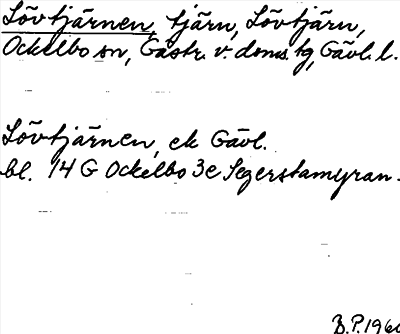 Lövtjärnen, tjärn, Lövtjärn,
Ockelbo sn, Gästr. v. doms. tg, Gävl. l.
Lövtjärnen, ek Gävl.
bl. 14 G Ockelbo 3e Segerstamyran.
B.P. 196